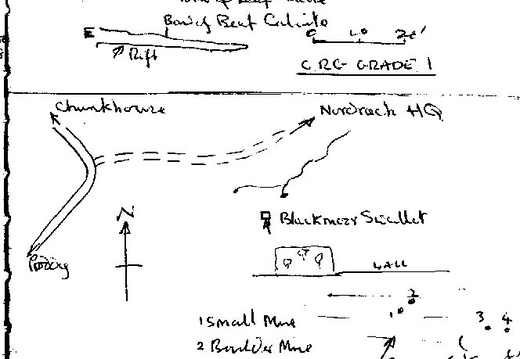 Band of Beef Calcite
E
Rift
0 10 20'
C.R.G. GRADE 1
Chunkhouse
Nordrach HQ
N
Blackmoor Swallet
Priddy
WALL
2
1
1 Small Mine
3 4
2 Boulder Mine